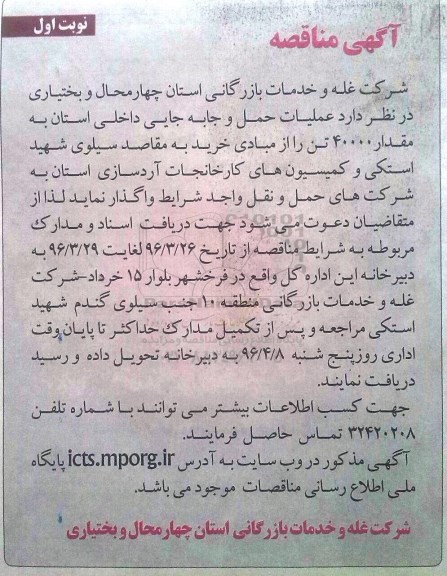 نوبت اول
آگهی مناقصه
شرکت غله و خدمات بازرگانی استان چهارمحال و بختیاری
در نظر دارد عملیات حمل و جابه جایی داخلی استان به
مقدار ۴۰۰۰۰ تن را از مبادی خرید به مقاصد سیلوی شهید
استکی و کمیسیون های کارخانجات آردسازی استان به
شرکت های حمل و نقل واجد شرایط واگذار نماید لذا از
متقاضیان دعوت می شود جهت دریافت اسناد و مدارک
مربوطه به شرایط مناقصه از تاریخ ۹۶/۳/۲۶ لغایت ۹۶/۳/۲۹ به
دبیرخانه این اداره کل واقع در فرخشهر بلوار ۱۵ خرداد-شرکت
غله و خدمات بازرگانی منطقه ۱۰ جنب سیلوی گندم شهید
استکی مراجعه و پس از تکمیل مدارک حداکثر تا پایان وقت
اداری روز پنج شنبه ۹۶/۴/۸ به دبیرخانه تحویل داده و رسید
دریافت نمایند.
جهت کسب اطلاعات بیشتر می توانند با شماره تلفن
۳۲۴۲۰۲۰۸ تماس حاصل فرمایند.
آگهی مذکور در وب سایت به آدرس icts.mporg.ir پایگاه
ملی اطلاع رسانی مناقصات موجود می باشد.
شرکت غله و خدمات بازرگانی استان چهارمحال و بختیاری